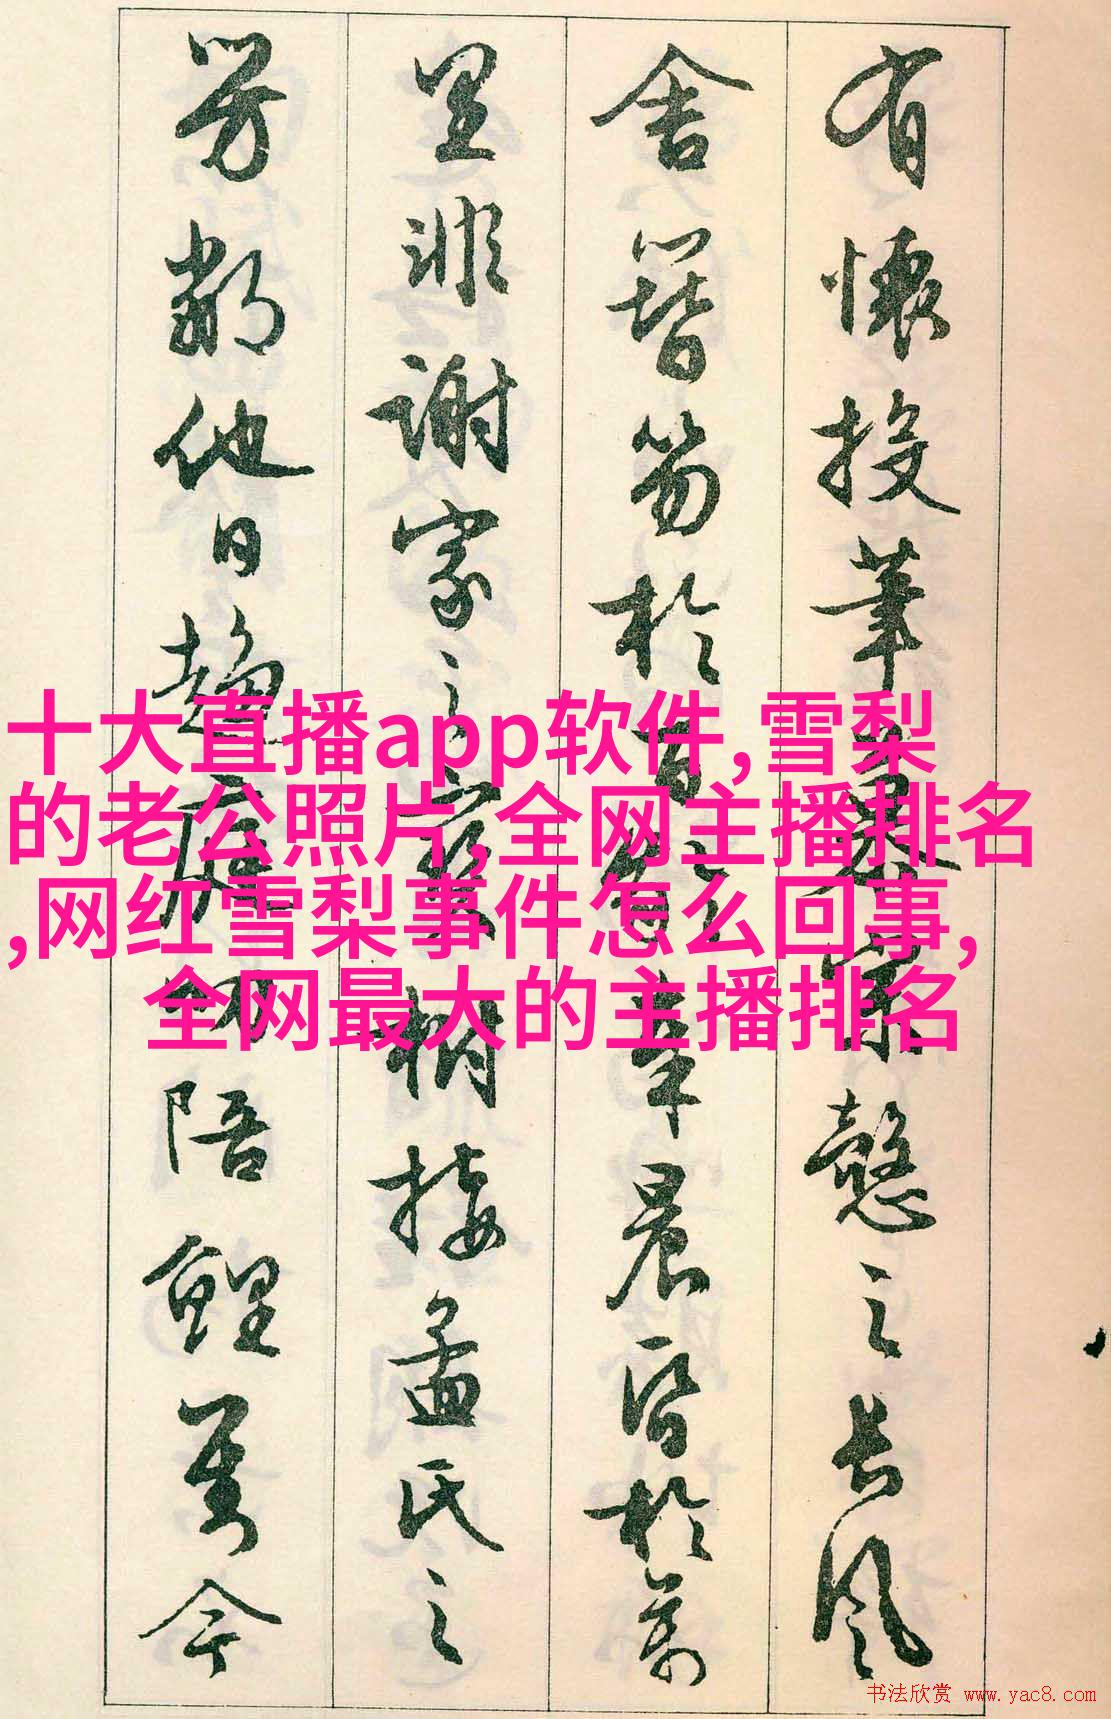 有懷投筆慕宗慤之長風
舍簪笏於百齡奉晨昏於萬
里非謝家之寶樹接孟氏之
芳鄰他日趨庭叨陪鯉對今
十大直播app软件,雪梨
的老公照片,全网主播排名
,网红雪梨事件怎么回事,
全网最大的主播排名
书法欣赏 www.yac8.com